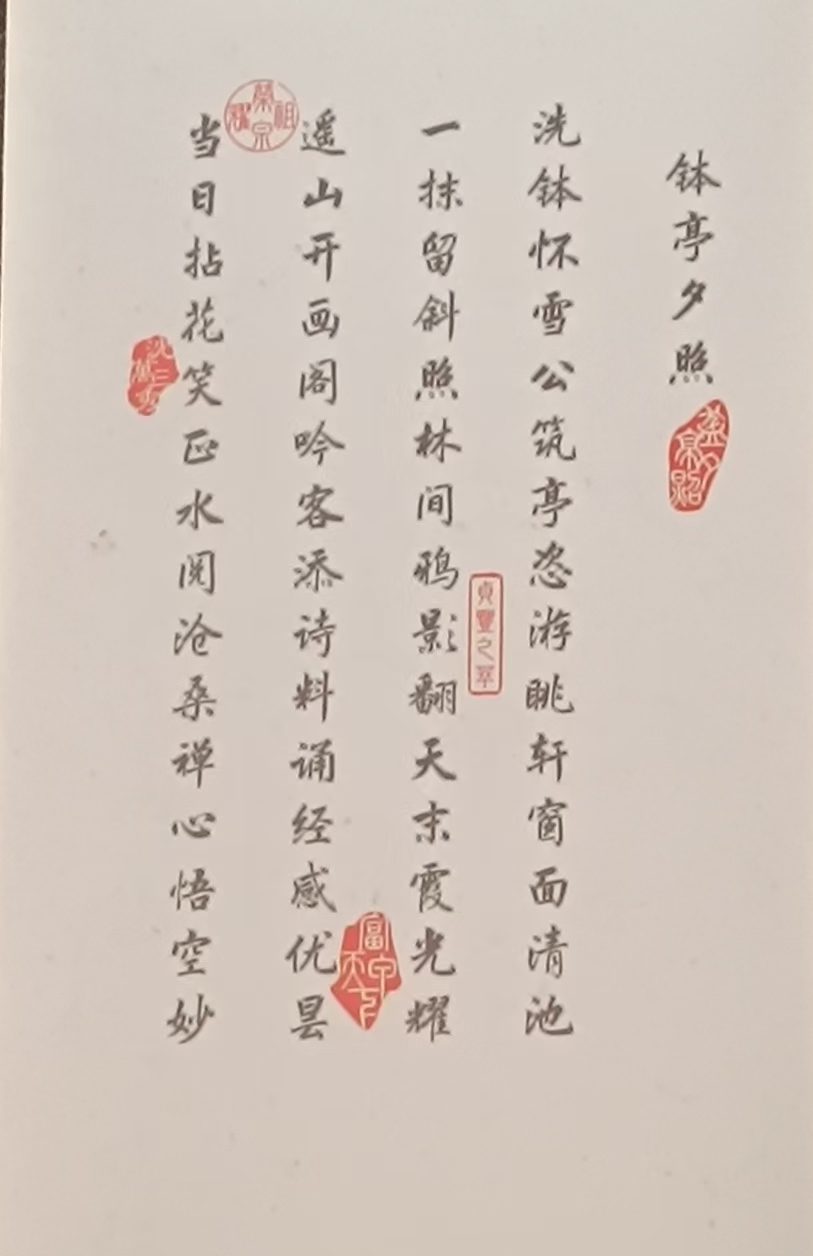 钵亭夕照
洗钵怀雪公筑亭恣游眺轩窗面清池
一抹留斜照林间鸦影翻天末霞光耀
遥山开画阁吟客添诗料诵经感优昙
当日拈花笑止水阅沧桑禅心悟空妙
贞丰之萃
沈万三秀